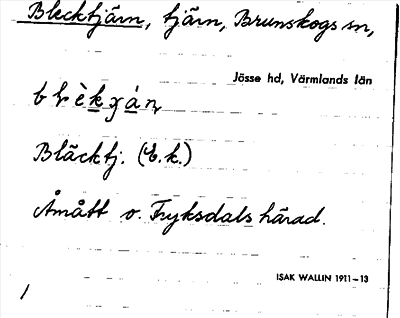 Blecktjärn, tjärn, Brunskogs sn,
Jösse hd, Värmlands län
Bläcktj. (E.k.)
Åmått o. Fryksdals härad.
ISAK WALLIN 1911–13
1